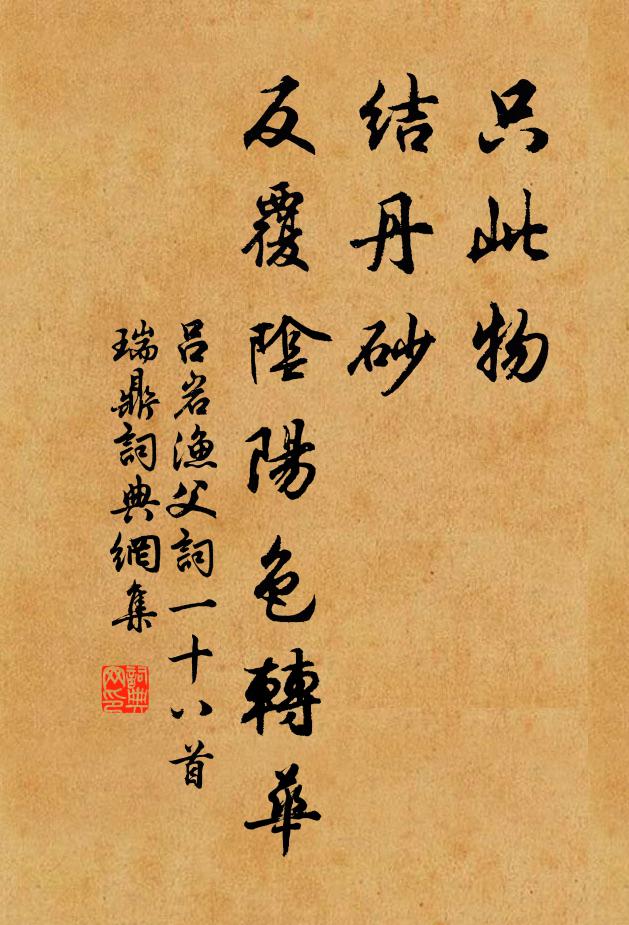 只此物
結丹砂
反覆陰陽色轉華
呂岩漁父詞一十八首
瑞鼎詞典網集
詞典
网印